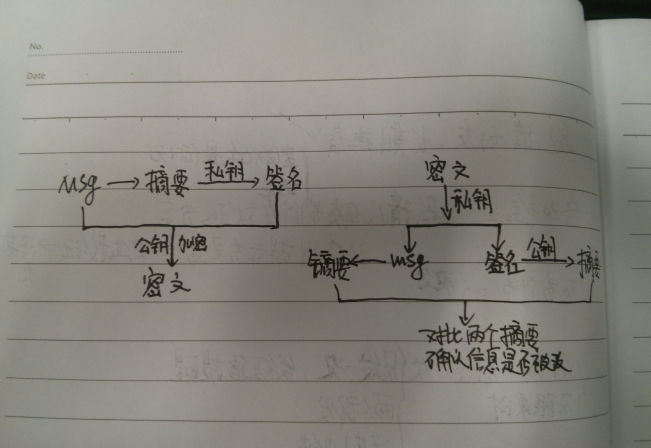 No.
Date
msg → 摘要 私钥→ 签名
公钥 加密
密文
密文
私钥
摘要 ← msg 签名 公钥→ 摘要
对比两个摘要
确认信息是否被改